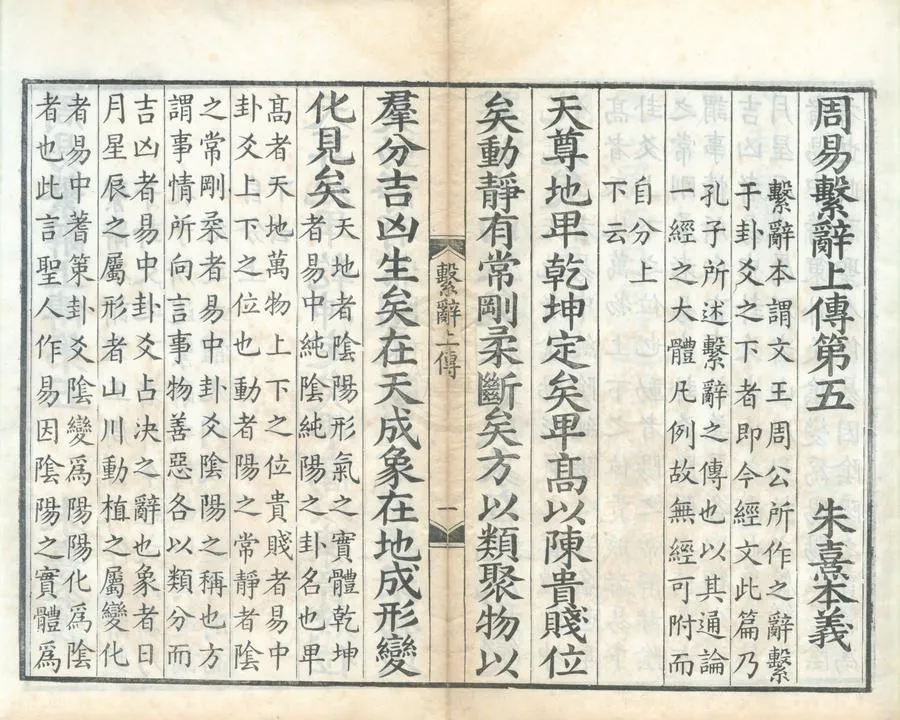 周易繫辭上傳第五 朱熹本義
繫辭本謂文王周公所作之辭繫
于卦爻之下者即今經文此篇乃
孔子所述繫辭之傳也以其通論
一經之大體凡例故無經可附而
自分上
下云
天尊地卑乾坤定矣卑高以陳貴賤位
矣動靜有常剛柔斷矣方以類聚物以
繫辭上傳 一
羣分吉凶生矣在天成象在地成形變
化見矣
天地者陰陽形氣之實體乾坤
者易中純陰純陽之卦名也卑
髙者天地萬物上下之位貴賤者易中
卦爻上下之位也動者陽之常靜者陰
之常剛柔者易中卦爻陰陽之稱也方
謂事情所向言事物善惡各以類分而
吉凶者易中卦爻占決之辭也象者日
月星辰之屬形者山川動植之屬變化
者易中蓍策卦爻陰變爲陽陽化爲陰
者也此言聖人作易因陰陽之實體爲